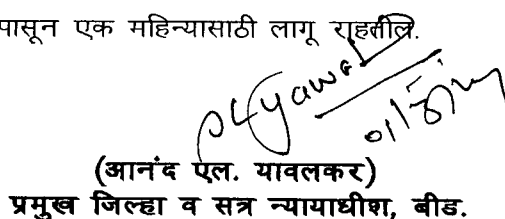 पासून एक महिन्यासाठी लागू राहतील.
(आनंद एल. यावलकर)
प्रमुख जिल्हा व सत्र न्यायाधीश, बीड.